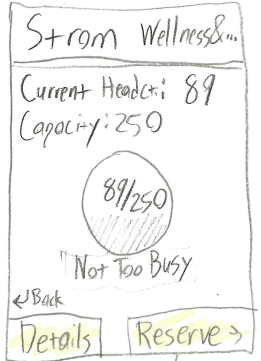 Strom Wellness&...
Current Headct: 89
Capacity: 250
89/250
Not Too Busy
↲Back
Details
Reserve >